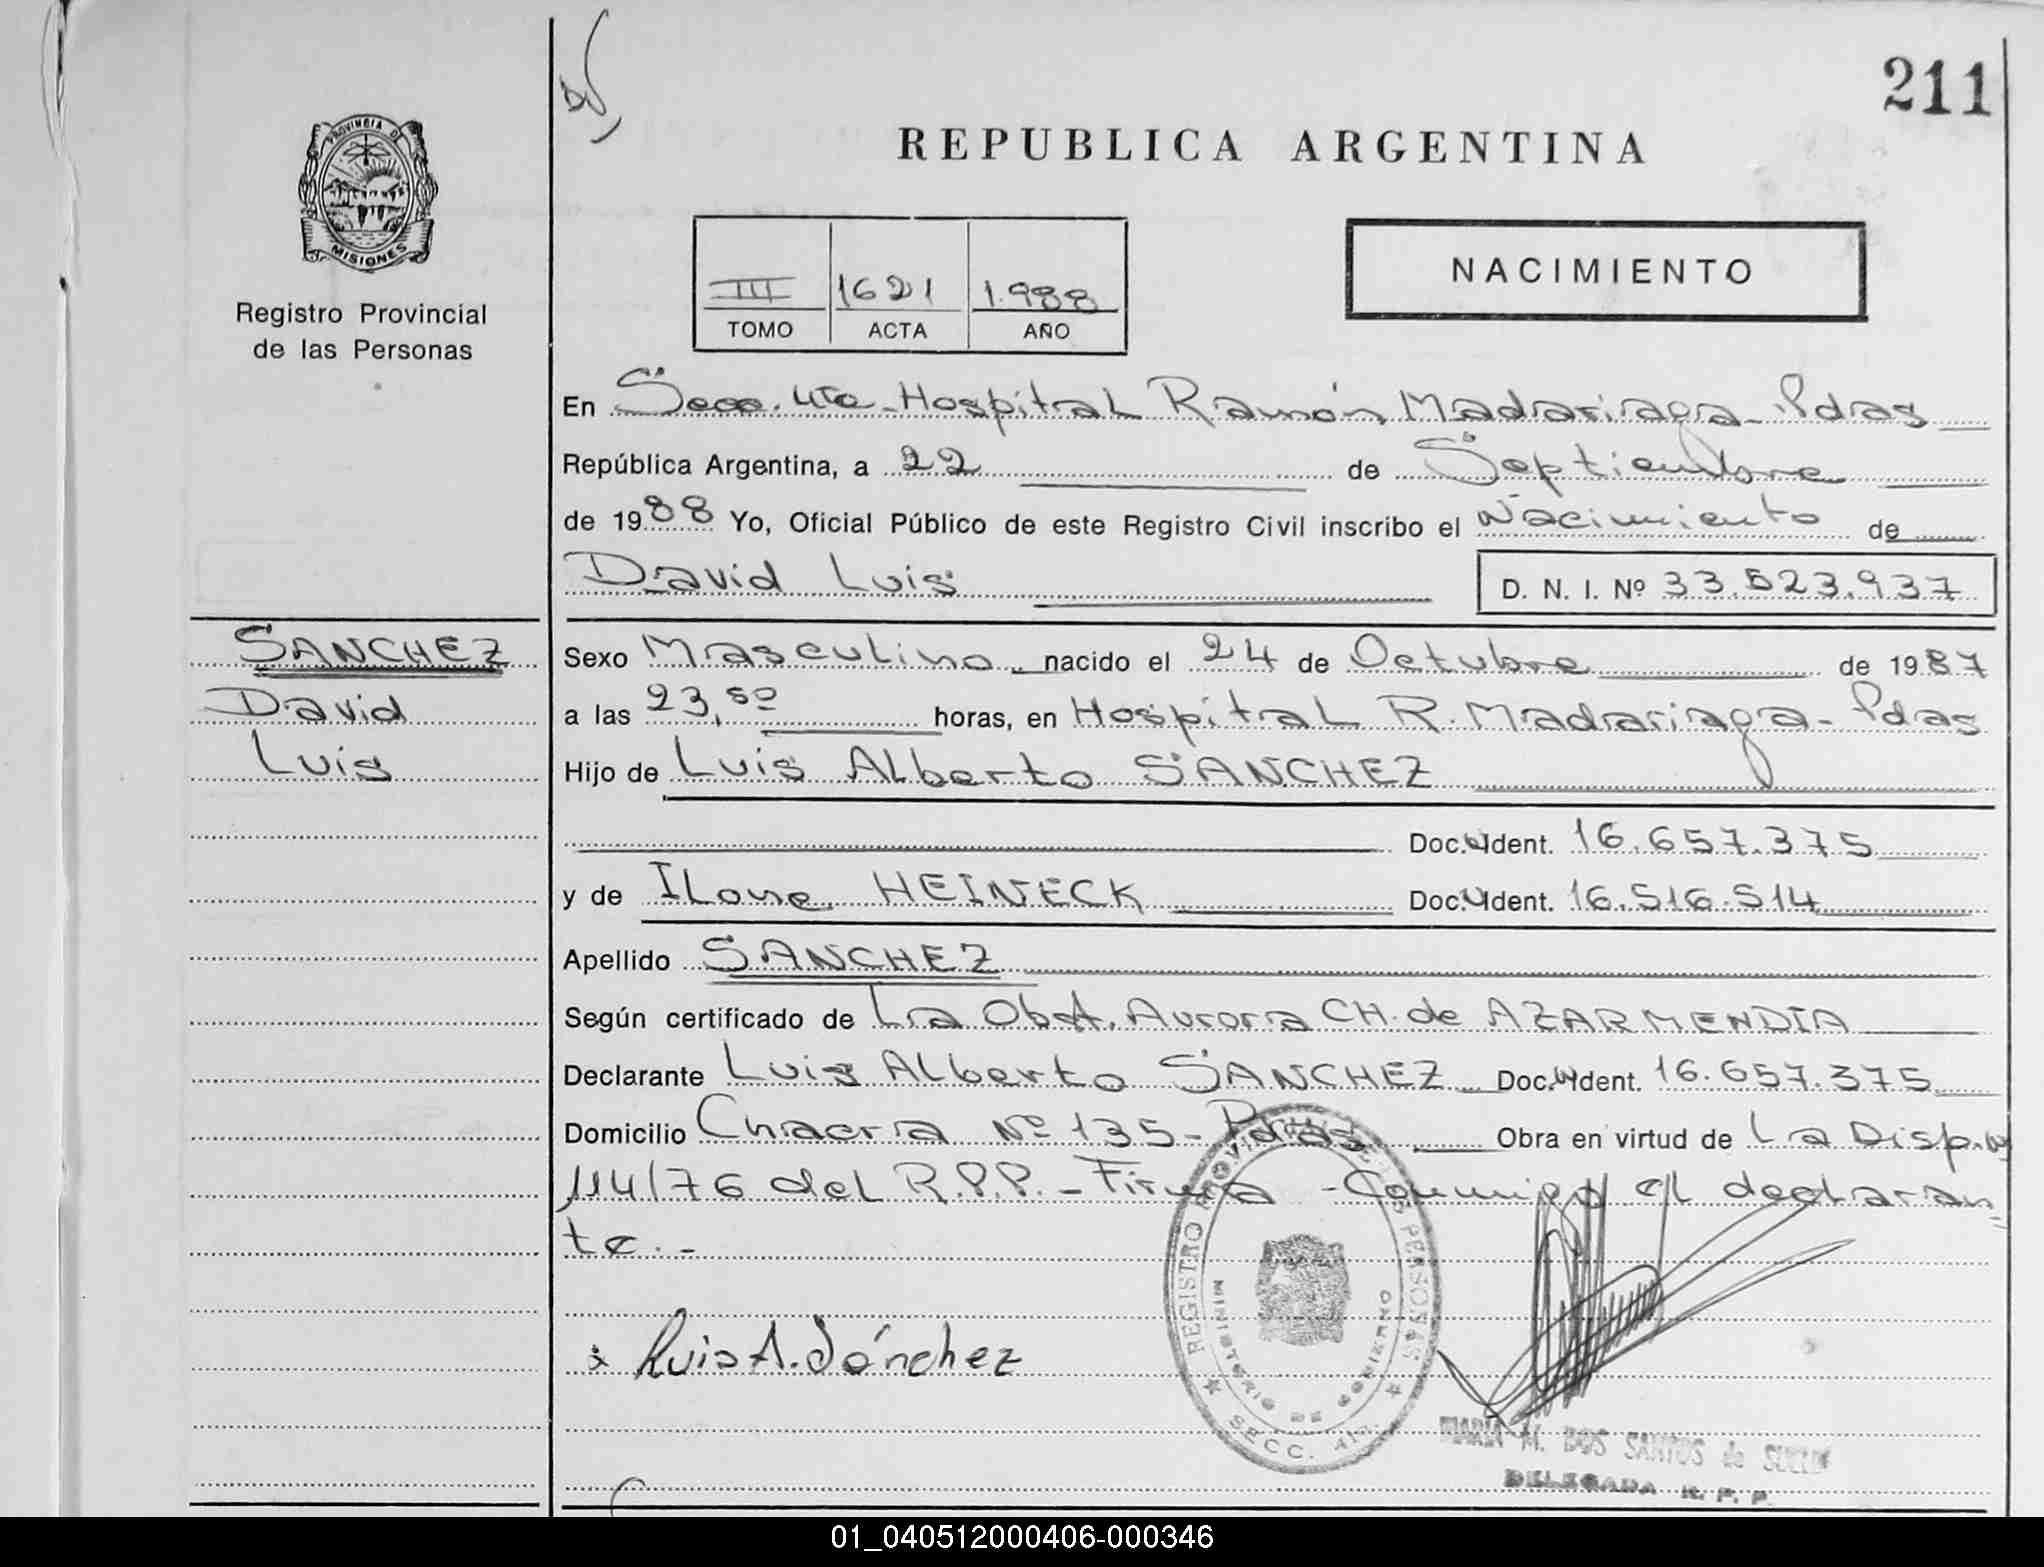 211
REPUBLICA ARGENTINA
PROVINCIA DE
MISIONES
Registro Provincial
de las Personas
III 1621 1.988
TOMO ACTA AÑO
NACIMIENTO
En Secc. 4ta - Hospital Ramón Madariaga - Pdas
República Argentina, a 22 de Septiembre
de 1988 Yo, Oficial Público de este Registro Civil inscribo el Nacimiento de
David Luis D. N. I. Nº 33.523.937
SANCHEZ
David
Luis
Sexo Masculino nacido el 24 de Octubre de 1987
a las 23,50 horas, en Hospital R. Madariaga - Pdas
Hijo de Luis Alberto SANCHEZ
Doc. Ident. 16.657.375
y de ILone HEINECK Doc. Ident. 16.516.514
Apellido SANCHEZ
Según certificado de La Obst. Aurora CH. de AZARMENDIA
Declarante Luis Alberto SANCHEZ Doc. Ident. 16.657.375
Domicilio Chacra Nº 135 - Pdas Obra en virtud de La Disp. Nº
114/76 del R.P.P. - Firma - Conmigo el declaran
te. -
Luis A. Sánchez
REGISTRO PROVINCIAL DE LAS PERSONAS
MINISTERIO DE GOBIERNO
SECC. 4ta.
MARIA M. DOS SANTOS de
DELEGADA R. P. P.
01_040512000406-000346